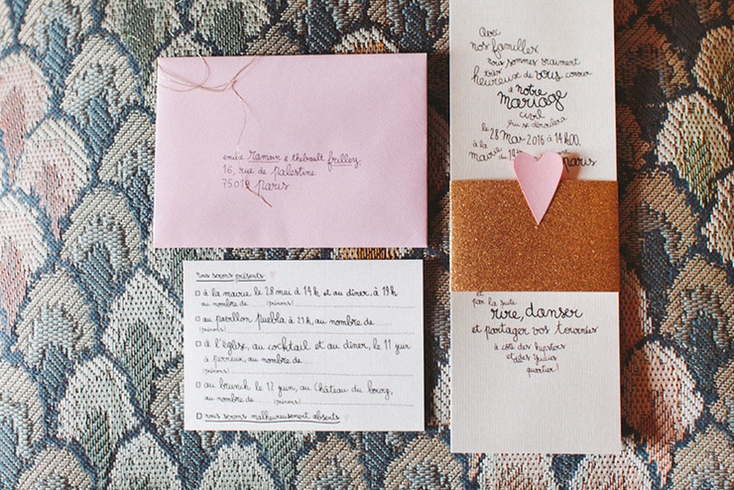 Avec
nos familles
nous sommes vraiment
très
heureux de vous convier
à notre
mariage
civil
qui se déroulera
le 28 Mai 2016 à 14h00,
à la
mairie du 19 paris
et par la suite
rire, danser
et partager vos tournées
à côté des hipsters
quartier!
16, rue de palestine
75019 paris
nous serons présents
à la mairie le 28 mai à 14h et au dîner, à 19h
au nombre de (prénoms)
au pavillon puebla à 21h, au nombre de
(prénoms)
à l'église, au cocktail et au dîner, le 11 juin
à perreux, au nombre de
(prénoms)
au brunch le 12 juin, au château du bourg,
au nombre de (prénoms)
nous serons malheureusement absents